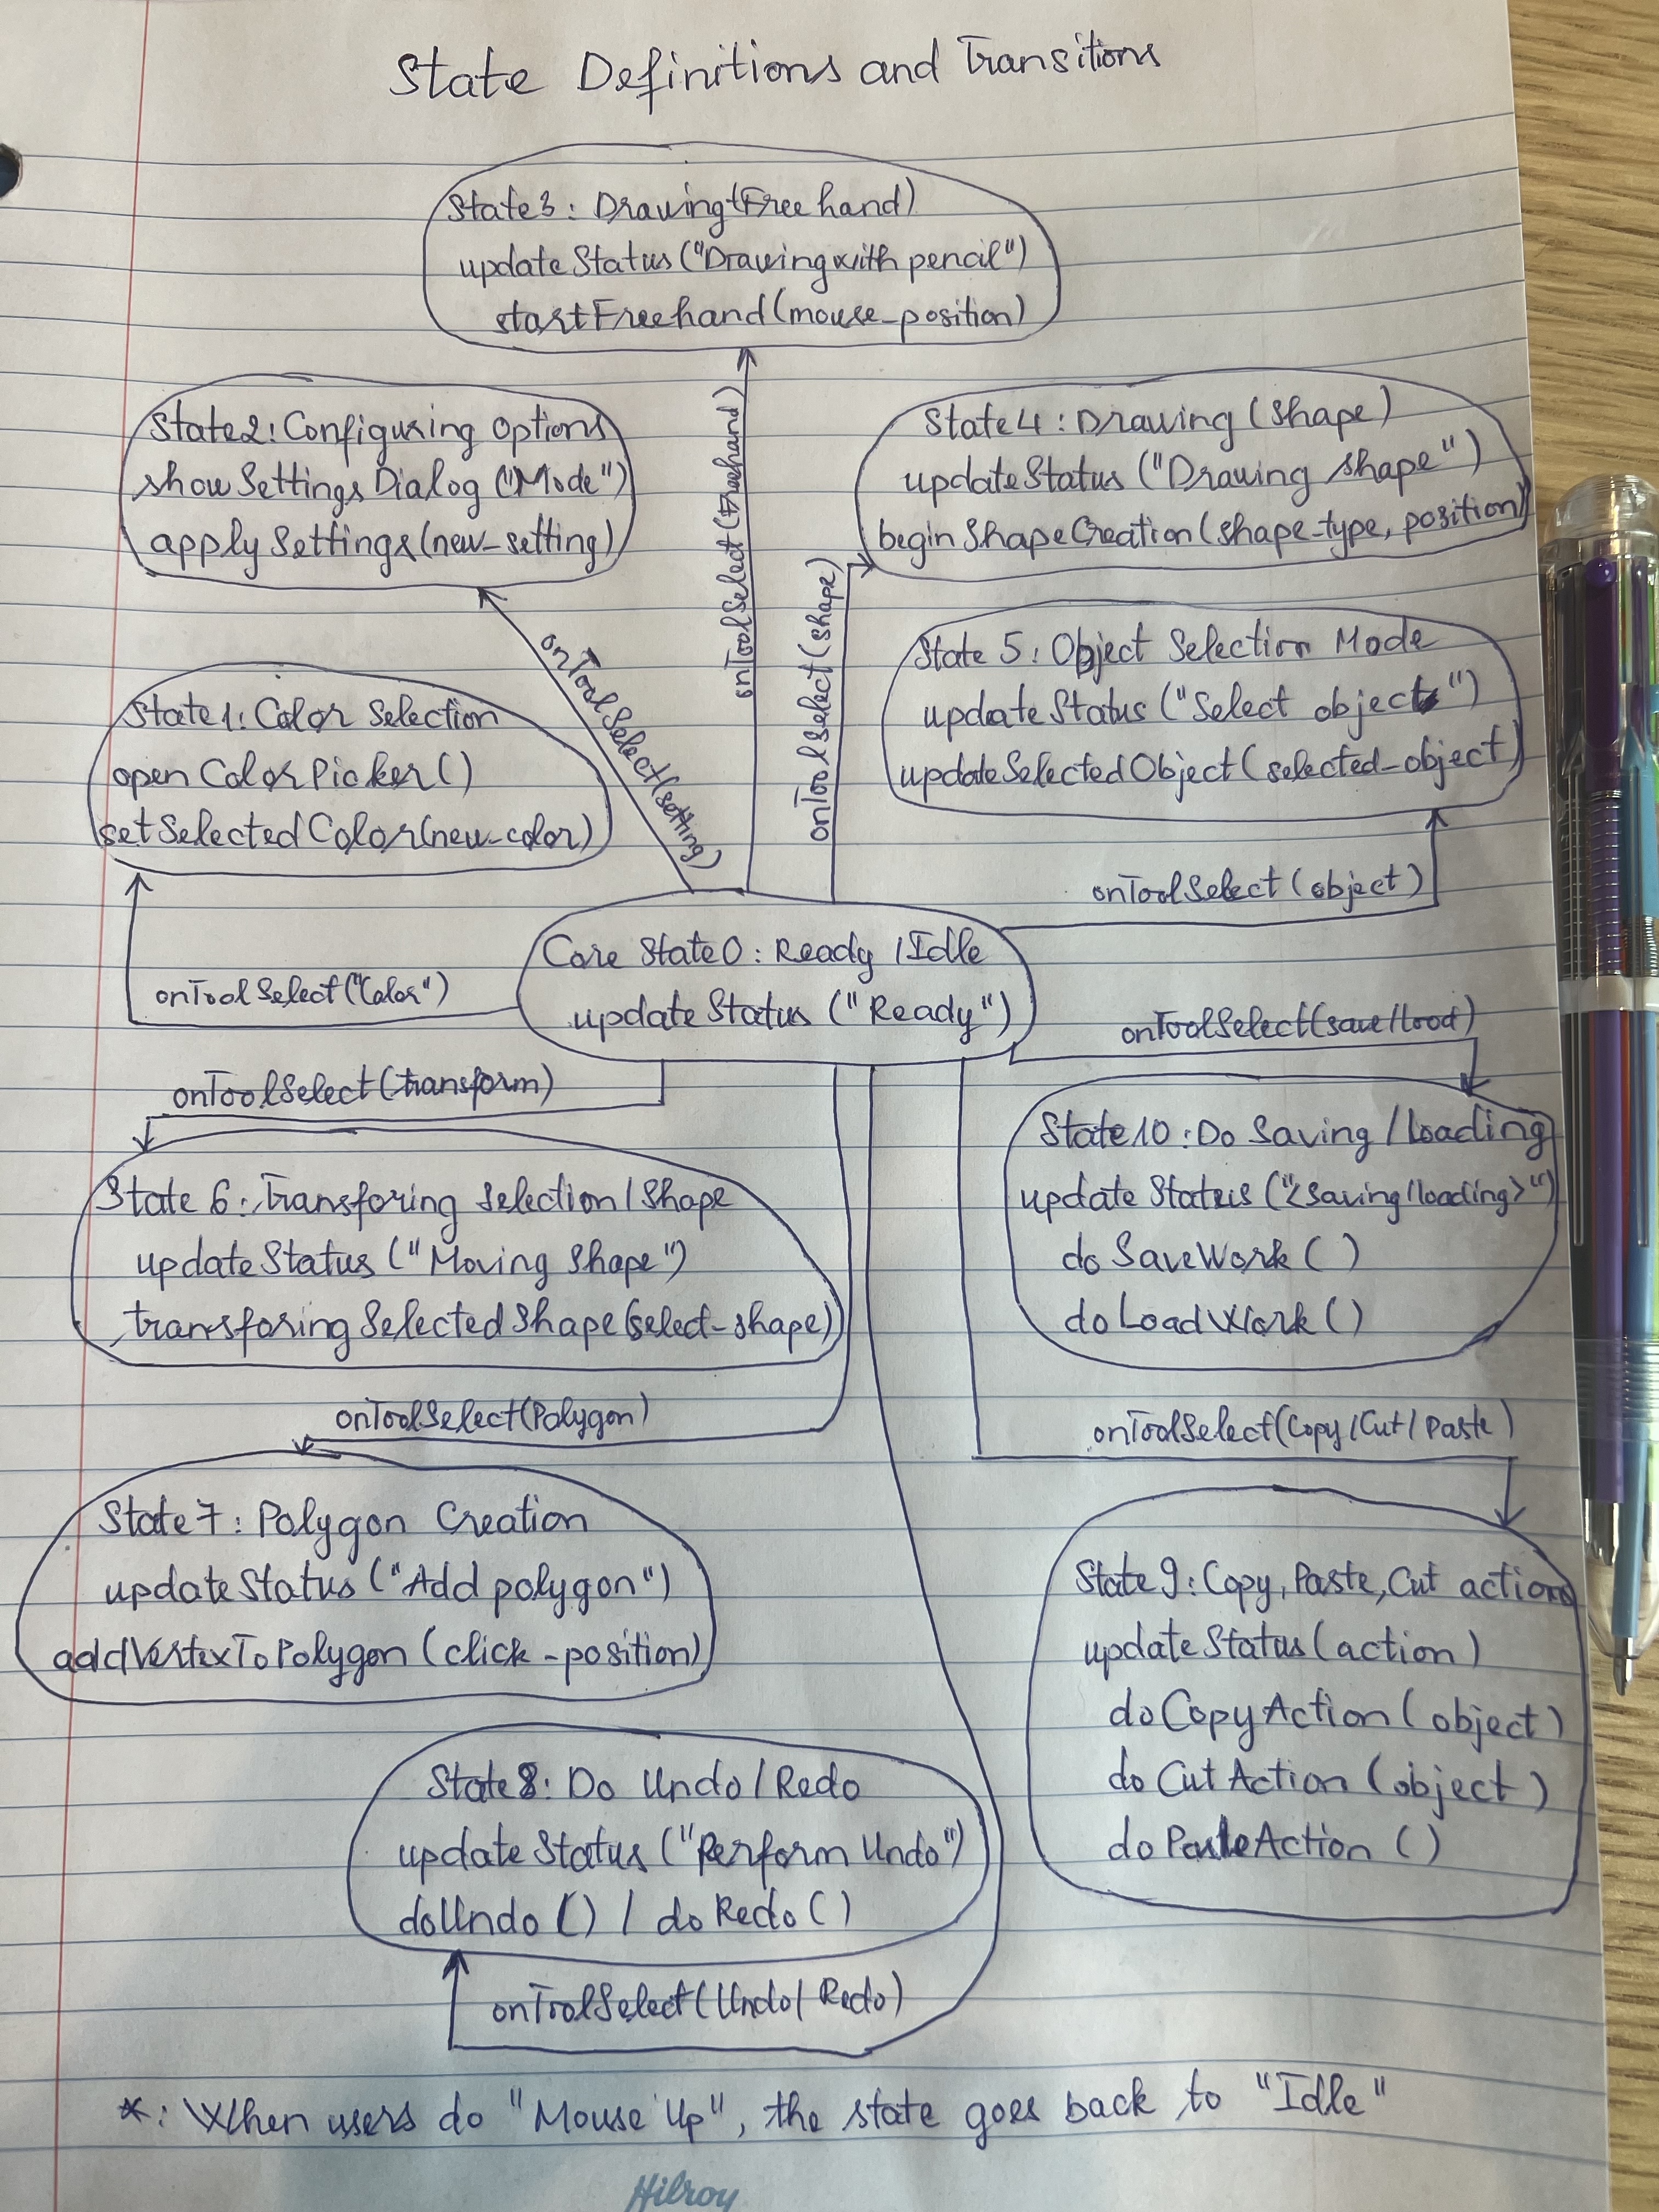 State Definitions and Transitions
State3: Drawing(Freehand)
updateStatus("Drawing with pencil")
startFreehand(mouse_position)
State2: Configuring Options
showSettingsDialog("Mode")
applySettings(new_setting)
onToolSelect(setting)
onToolSelect(Freehand)
onToolSelect(shape)
State4: Drawing (shape)
updateStatus ("Drawing shape")
beginShapeCreation(shape_type, position)
State 5: Object Selection Mode
updateStatus ("Select object")
updateSelectedObject(selected_object)
onToolSelect(object)
State1: Color Selection
openColorPicker()
setSelectedColor(new_color)
onToolSelect("Color")
Core State0: Ready / Idle
updateStatus ("Ready")
onToolSelect(save/load)
onToolSelect(transform)
State10: Do Saving / Loading
updateStatus ("<saving/loading>")
doSaveWork()
doLoadWork()
State 6: Transforing Selection/Shape
updateStatus ("Moving Shape")
transforingSelectedShape(select_shape)
onToolSelect(Polygon)
onToolSelect(Copy/Cut/Paste)
State7: Polygon Creation
updateStatus ("Add polygon")
addVertexToPolygon (click_position)
State9: Copy, Paste, Cut actions
updateStatus(action)
doCopyAction(object)
doCutAction (object)
doPasteAction ()
State8: Do Undo / Redo
updateStatus ("Perform Undo")
doUndo() / doRedo()
onToolSelect(Undo/Redo)
*: When users do "Mouse Up", the state goes back to "Idle"
Hilroy